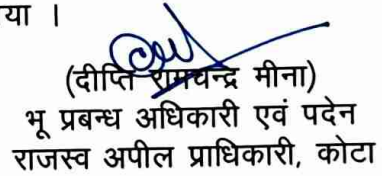 या ।
(दीप्ति रामचन्द्र मीना)
भू प्रबन्ध अधिकारी एवं पदेन
राजस्व अपील प्राधिकारी, कोटा